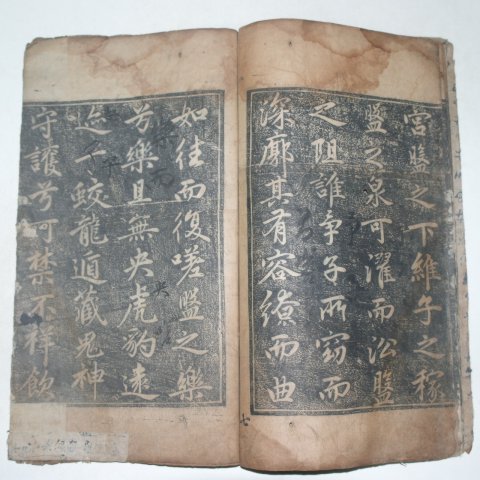 宮盤之下維子之稼
盤之泉可濯而沿盤
之阻誰争子所窈而
深廓其有容繚而曲
七
如往而復嗟盤之樂
兮樂且無央虎豹遠
迹兮蛟龍遁藏鬼神
守護兮可禁不祥飲